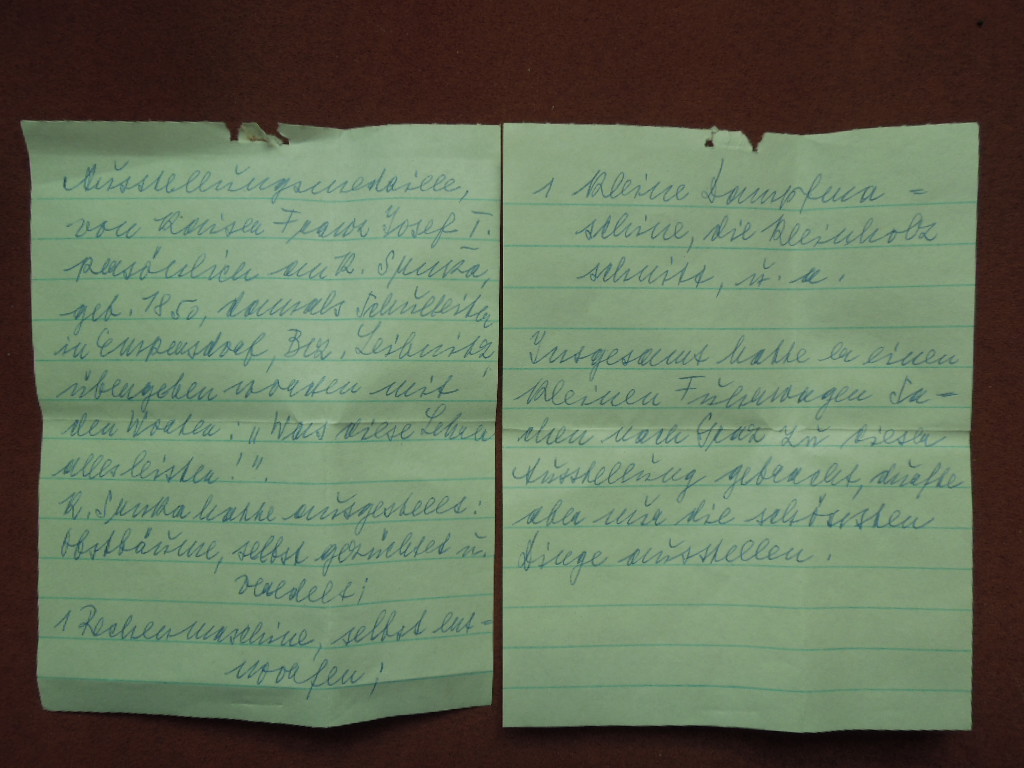 Ausstellungsmedaille,
von Kaiser Franz Josef I.
persönlich an K. Spurka,
geb. 1850, damals Schulleiter
in Empersdorf, Bez. Leibnitz,
übergeben worden mit
den Worten: „Was diese Lehrer
alles leisten!".
K. Spurka hatte ausgestellt:
Obstbäume, selbst gezüchtet u.
veredelt;
1 Rechenmaschine, selbst ent-
worfen;
1 kleine Dampfma =
schine, die Kleinholz
schnitt, u. a.
Insgesamt hatte er einen
kleinen Fuhrwagen Sa-
chen nach Graz zu dieser
Ausstellung gebracht, durfte
aber nur die schönsten
Dinge ausstellen.